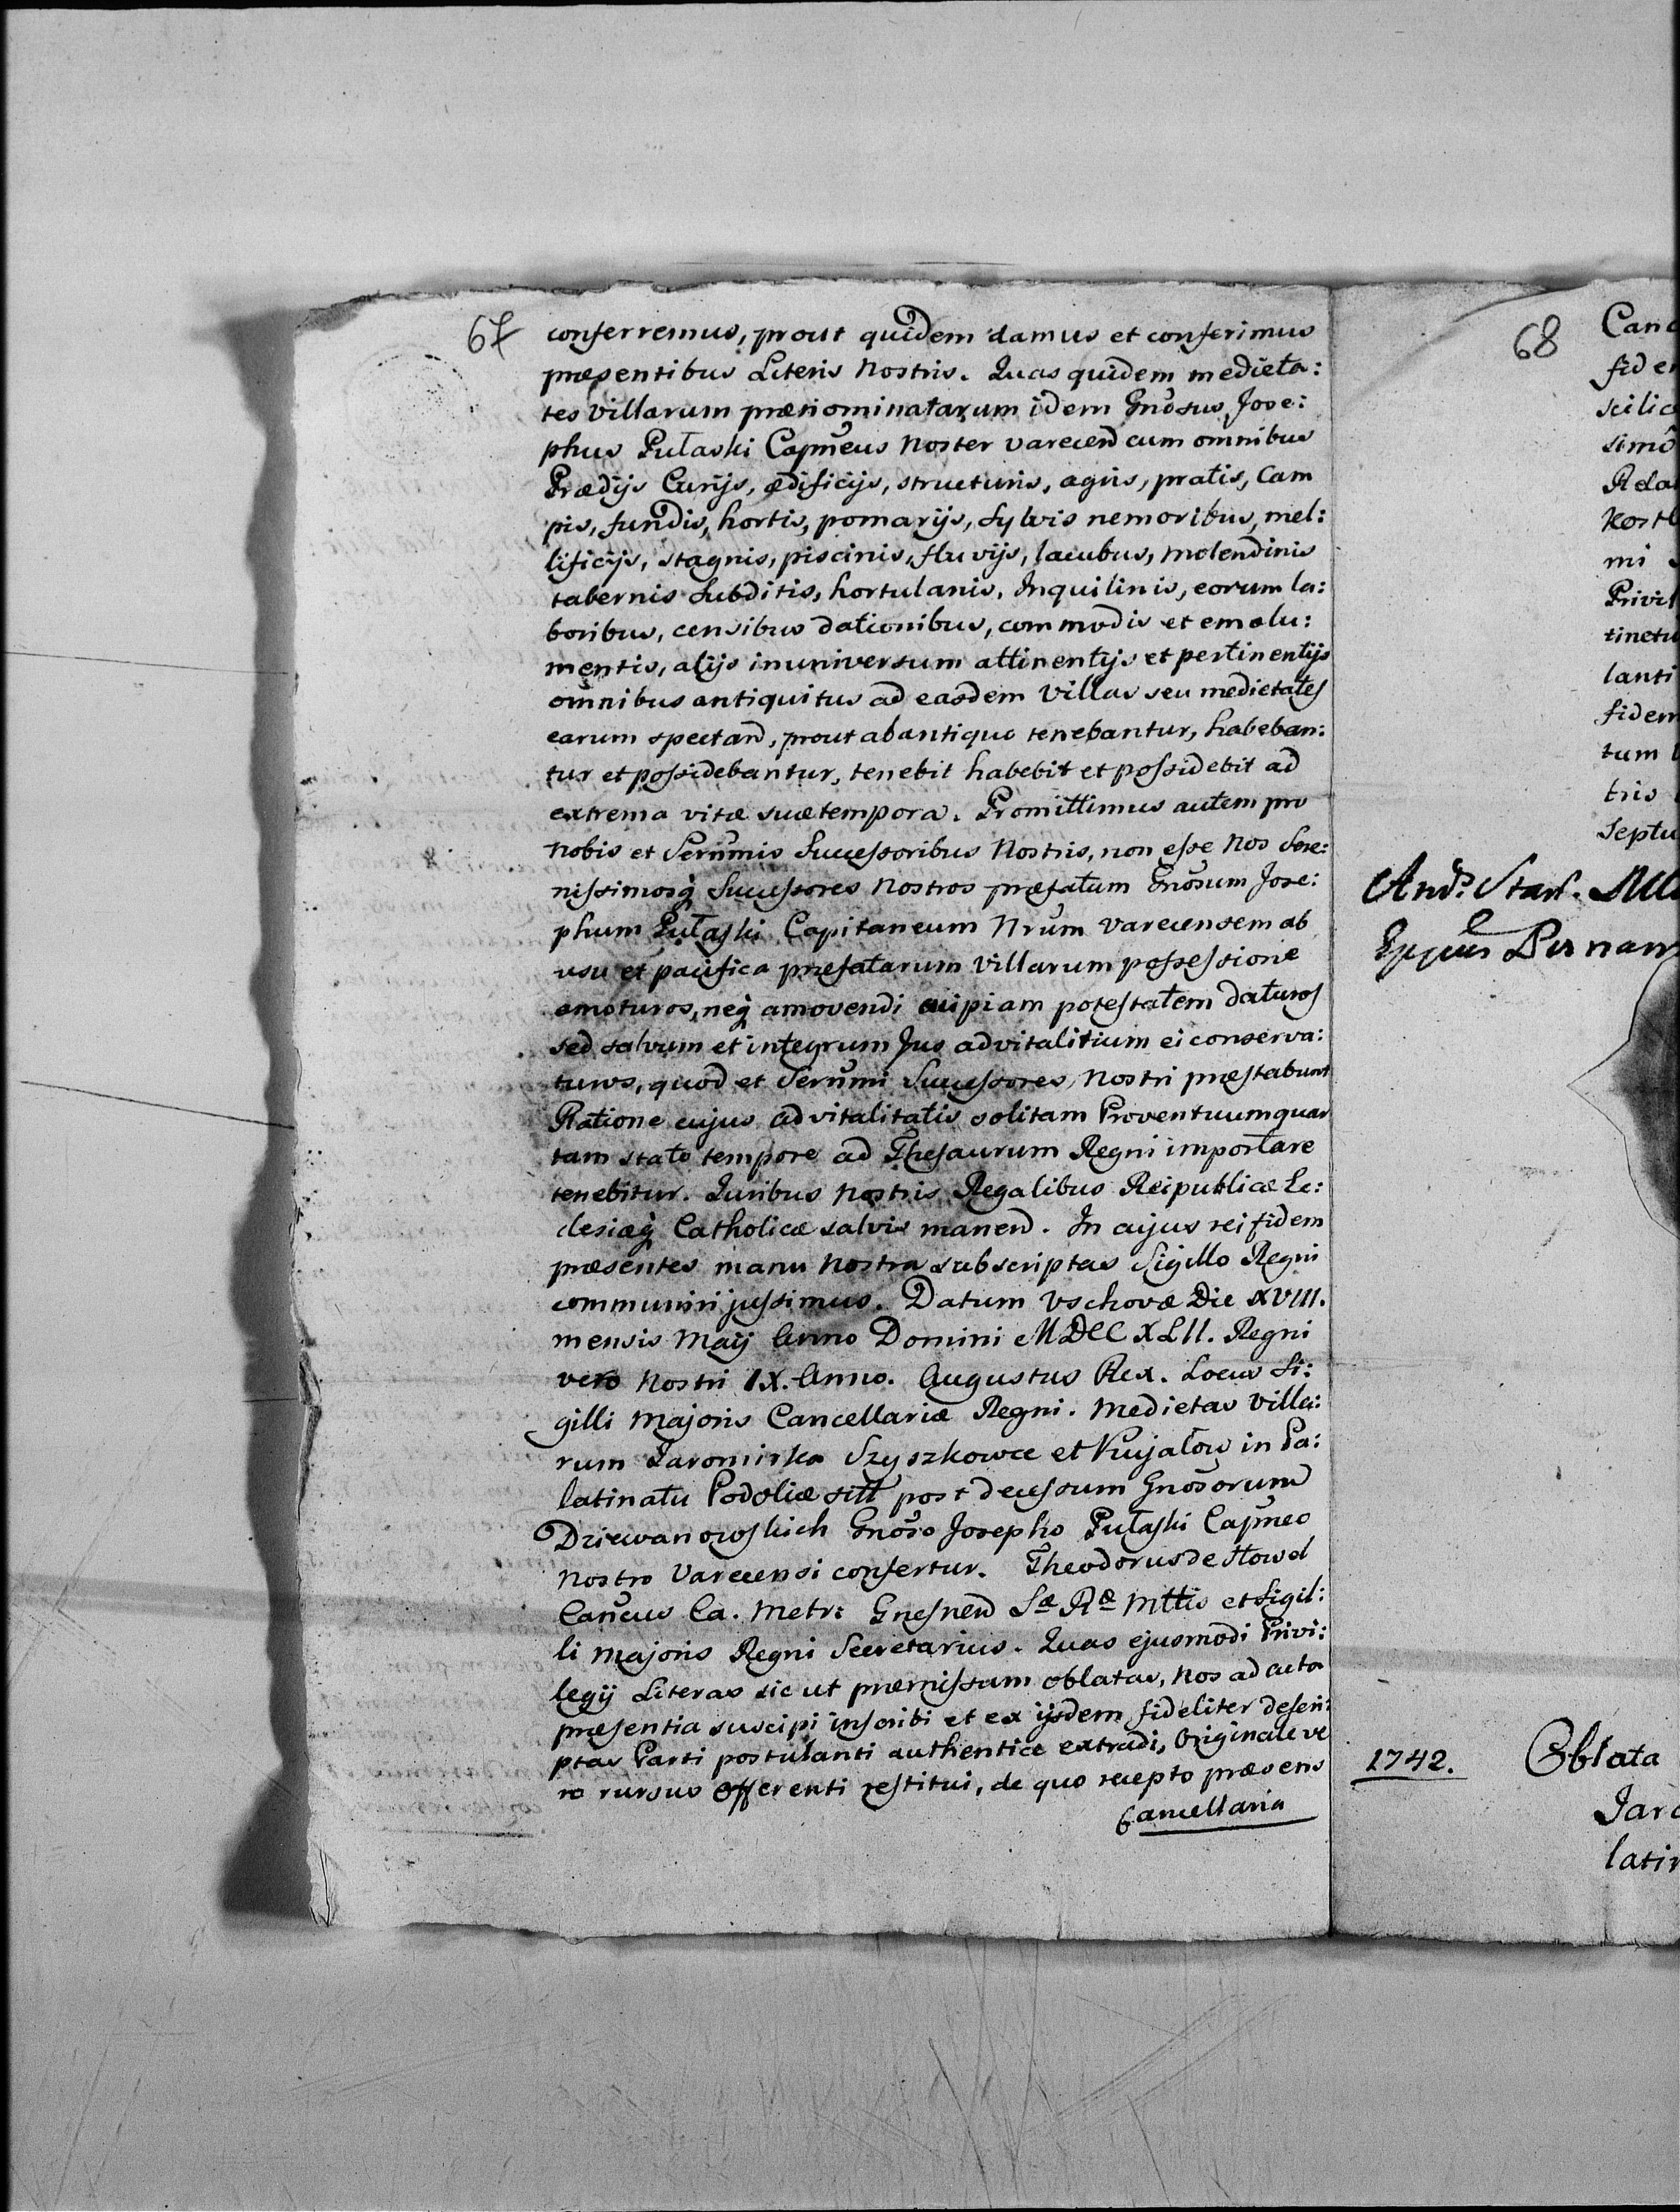 67
conferremus, prout quidem damus et conferimus
præsentibus Literis Nostris. Quas quidem medieta:
tes villarum prænominatarum idem Gnosus Jose:
phus Pułaski Capneus Noster Varecen cum omnibus
Prædijs Curijs, ædificijs, structuris, agris, pratis, Cam
pis, fundis, hortis, pomarijs, sylvis nemoribus, mel:
lificijs, stagnis, piscinis, fluvijs, lacubus, molendinis
tabernis subditis, hortulanis, Inquilinis, eorum la:
boribus, censibus dationibus, commodis et emolu:
mentis, alijs inuniversum attinentijs et pertinentijs
omnibus antiquitus ad easdem Villas seu medietates
earum spectand, prout ab antiquo tenebantur, habeban:
tur et possidebantur, tenebit habebit et possidebit ad
extrema vitæ suæ tempora. Promittimus autem pro
nobis et Serumis Successoribus Nostris, non esse Nos Sere:
nissimosq Successores Nostros præfatum Gnosum Jose:
phum Pułaski Capitaneum Nrum Varecensem ab
usu et pacifica præfatarum Villarum possessione
amoturos, neq amovendi cuipiam potestatem daturos
sed salvum et integrum Jus advitalitium ei conserva:
turos, quod et Serumi Successores Nostri præstabunt
Ratione cujus advitalitatis solitam Proventuum quar
tam stato tempore ad Thesaurum Regni importare
tenebitur. Juribus nostris Regalibus Reipublicæ Ec:
clesiæq Catholicæ salvis manend. In cujus rei fidem
præsentes manu Nostra subscriptas Sigillo Regni
communiri jussimus. Datum Vschovæ Die XVIII.
mensis Maij Anno Domini MDCCXLII. Regni
vero Nostri IX. Anno. Augustus Rex. Locus Si:
gilli Majoris Cancellariæ Regni. Medietas Villa:
rum Jaromirka Szyszkowce et Kujatow in Pa:
latinatu Podoliæ sitt post decessum Gnosorum
Dziewanowskich Gnoso Josepho Pułaski Capneo
Nostro Varecensi confertur. Theodorus de
Cancus Ca. Metr: Gnesnen Sæ Ræ Mttis et Sigil:
li Majoris Regni Secretarius. Quas ejusmodi Privi:
legij Literas sic ut præmissum oblatas, Nos ad acta
præsentia suscipi inscribi et ex ijsdem fideliter descri:
ptas Parti postulanti authentice extradi, Originale ve
ro rursus offerenti restitui, de quo recepto præsens
Cancellaria
68
Canc
fidem
scilic
simo
Rela
Kost
mi
Privil
tinetu
lanti
fidem
tum
tris
Septu
1742.
Oblata
Jaro
latin